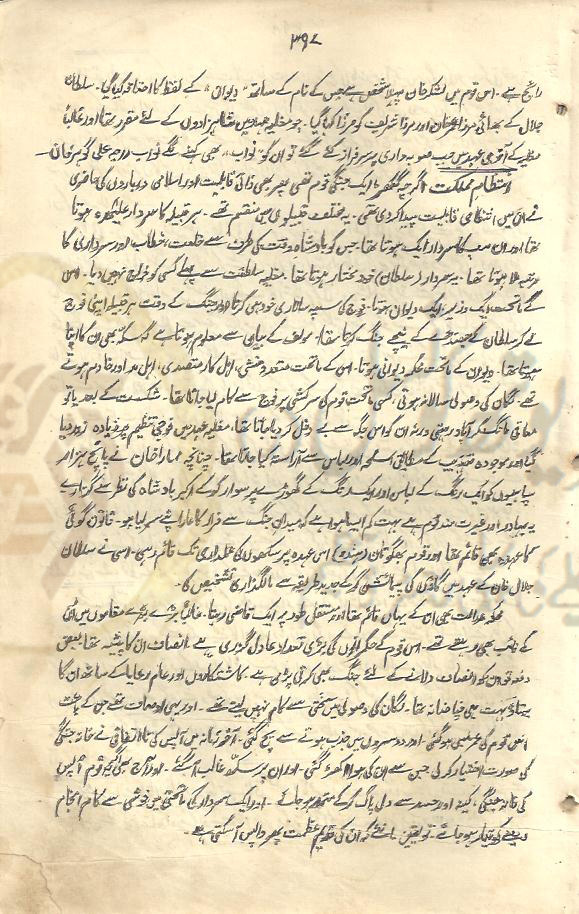 ۳۹۷
رائج ہے۔ اس قوم میں لشکر خان پہلا شخص ہے جس کے نام کے ساتھ "دیوان" کے لفظ کا اضافہ کیا گیا۔ سلطان
جلال کے بھائی مرزا اور مرزا شریف گوہر مرزا کہلایا گیا۔ جو مغلیہ عہد میں شاہزادوں کے لئے مقرر تھا اور غالباً
مغلیہ کے آخری عہد میں جب صوبہ داری پر سرفراز کئے گئے تو ان کو "نواب" بھی کہنے لگے نواب علی گوہر خان۔
انتظام مملکت اگرچہ گکھڑ ایک جنگی قوم تھی پھر بھی ذاتی قابلیت اور اسلامی درباروں کی حاضری
نے ان میں انتظامی قابلیت پیدا کر دی تھی۔ یہ مختلف قبیلوں میں منقسم تھے۔ ہر قبیلہ کا سردار علیٰحدہ ہوتا
تھا اور ان سب کا سردار ایک ہوتا تھا۔ جس کو بادشاہ وقت کی طرف سے خلعت، خطاب اور سرداری کا
عطا ہوتا تھا۔ یہ سردار (سلطان) خود مختار ہوتا تھا۔ مغلیہ سلطنت سے پہلے کسی کو خراج نہیں دیا۔ اس
کے ماتحت ایک وزیر، ایک دیوان ہوتا۔ فوج کی سپہ سالاری خود ہی کرتا اور جنگ کے وقت ہر قبیلہ اپنی فوج
لے کر سلطان کے جھنڈے کے نیچے جنگ کرتا تھا۔ مولف کے بیان سے معلوم ہوتا ہے کہ سکہ بھی ان کا اپنا
ہوتا تھا۔ دیوان کے ماتحت محکمہ دیوانی ہوتا۔ اس کے ماتحت متعدد منشی، اہل کار متصدی، اہل مد اور خادم ہوتے
تھے۔ لگان کی وصولی سالانہ ہوتی، کسی ماتحت قوم کی سرکشی پر فوج سے کام لیا جاتا تھا۔ شکست کے بعد یا تو
معافی مانگ کر آباد رہتی ورنہ ان کو اس جگہ سے بے دخل کر دیا جاتا تھا۔ مغلیہ عہد میں فوجی تنظیم پر زیادہ زور دیا
گیا اور موجودہ تہذیب کے مطابق اسلحہ اور لباس سے آراستہ کیا جاتا تھا۔ چنانچہ خان نے پانچ ہزار
سپاہیوں کو ایک رنگ کے لباس اور ایک رنگ کے گھوڑے پر سوار کر کے اکبر بادشاہ کی نظر سے گزارے
یہ بہادر اور غیرت مند قوم ہے بہت کم ایسا ہوا ہے کہ میدان جنگ سے فرار کا عار اپنے سر لیا ہو۔ قانون گوئی
کا عہدہ بھی قائم تھا اور قوم (ہندو) اس عہدہ پر سکھوں کی عملداری تک قائم رہی۔ اسی نے سلطان
جلال خان کے عہد میں گاؤں کی پیمائش کر کے جدید طریقہ سے مالگذاری تشخیص کی۔
محکمہ عدالت بھی ان کے یہاں قائم تھا اور مستقل طور پر ایک قاضی رہتا۔ غالباً بڑے بڑے مقاموں میں اس
کے نائب بھی رہتے تھے۔ اس قوم کے حکمرانوں کی بڑی تعداد عادل گذری ہے۔ انصاف ان کا پیشہ تھا بعض
دفعہ تو ان کو انصاف دلانے کے لئے جنگ بھی کرنی پڑی ہے۔ کاشتکاروں اور عام رعایا کے ساتھ ان کا
برتاؤ بہت ہی فیاضانہ تھا۔ لگان کی وصولی میں سختی سے کام نہیں لیتے تھے۔ اور یہی اوصاف تھے جن کے باعث
اس قوم کی عمر لمبی ہو گئی۔ اور دوسروں میں جذب ہونے سے بچ گئی۔ آخر زمانہ میں آپس کی نا اتفاقی نے خانہ جنگی
کی صورت اختیار کر لی جس سے ان کی ہوا اکھڑ گئی۔ اور ان پر سکھ غالب آ گئے۔ اور آج بھی اگر یہ قوم آپس
کی خانہ جنگی، کینہ اور حسد سے دل پاک کر کے متحد ہو جائے۔ اور ایک سردار کی ماتحتی میں خوشی سے کام انجام
دینے کو تیار ہو جائے۔ تو یقین مانئے کہ ان کی قدیم عظمت پھر واپس آ سکتی ہے۔